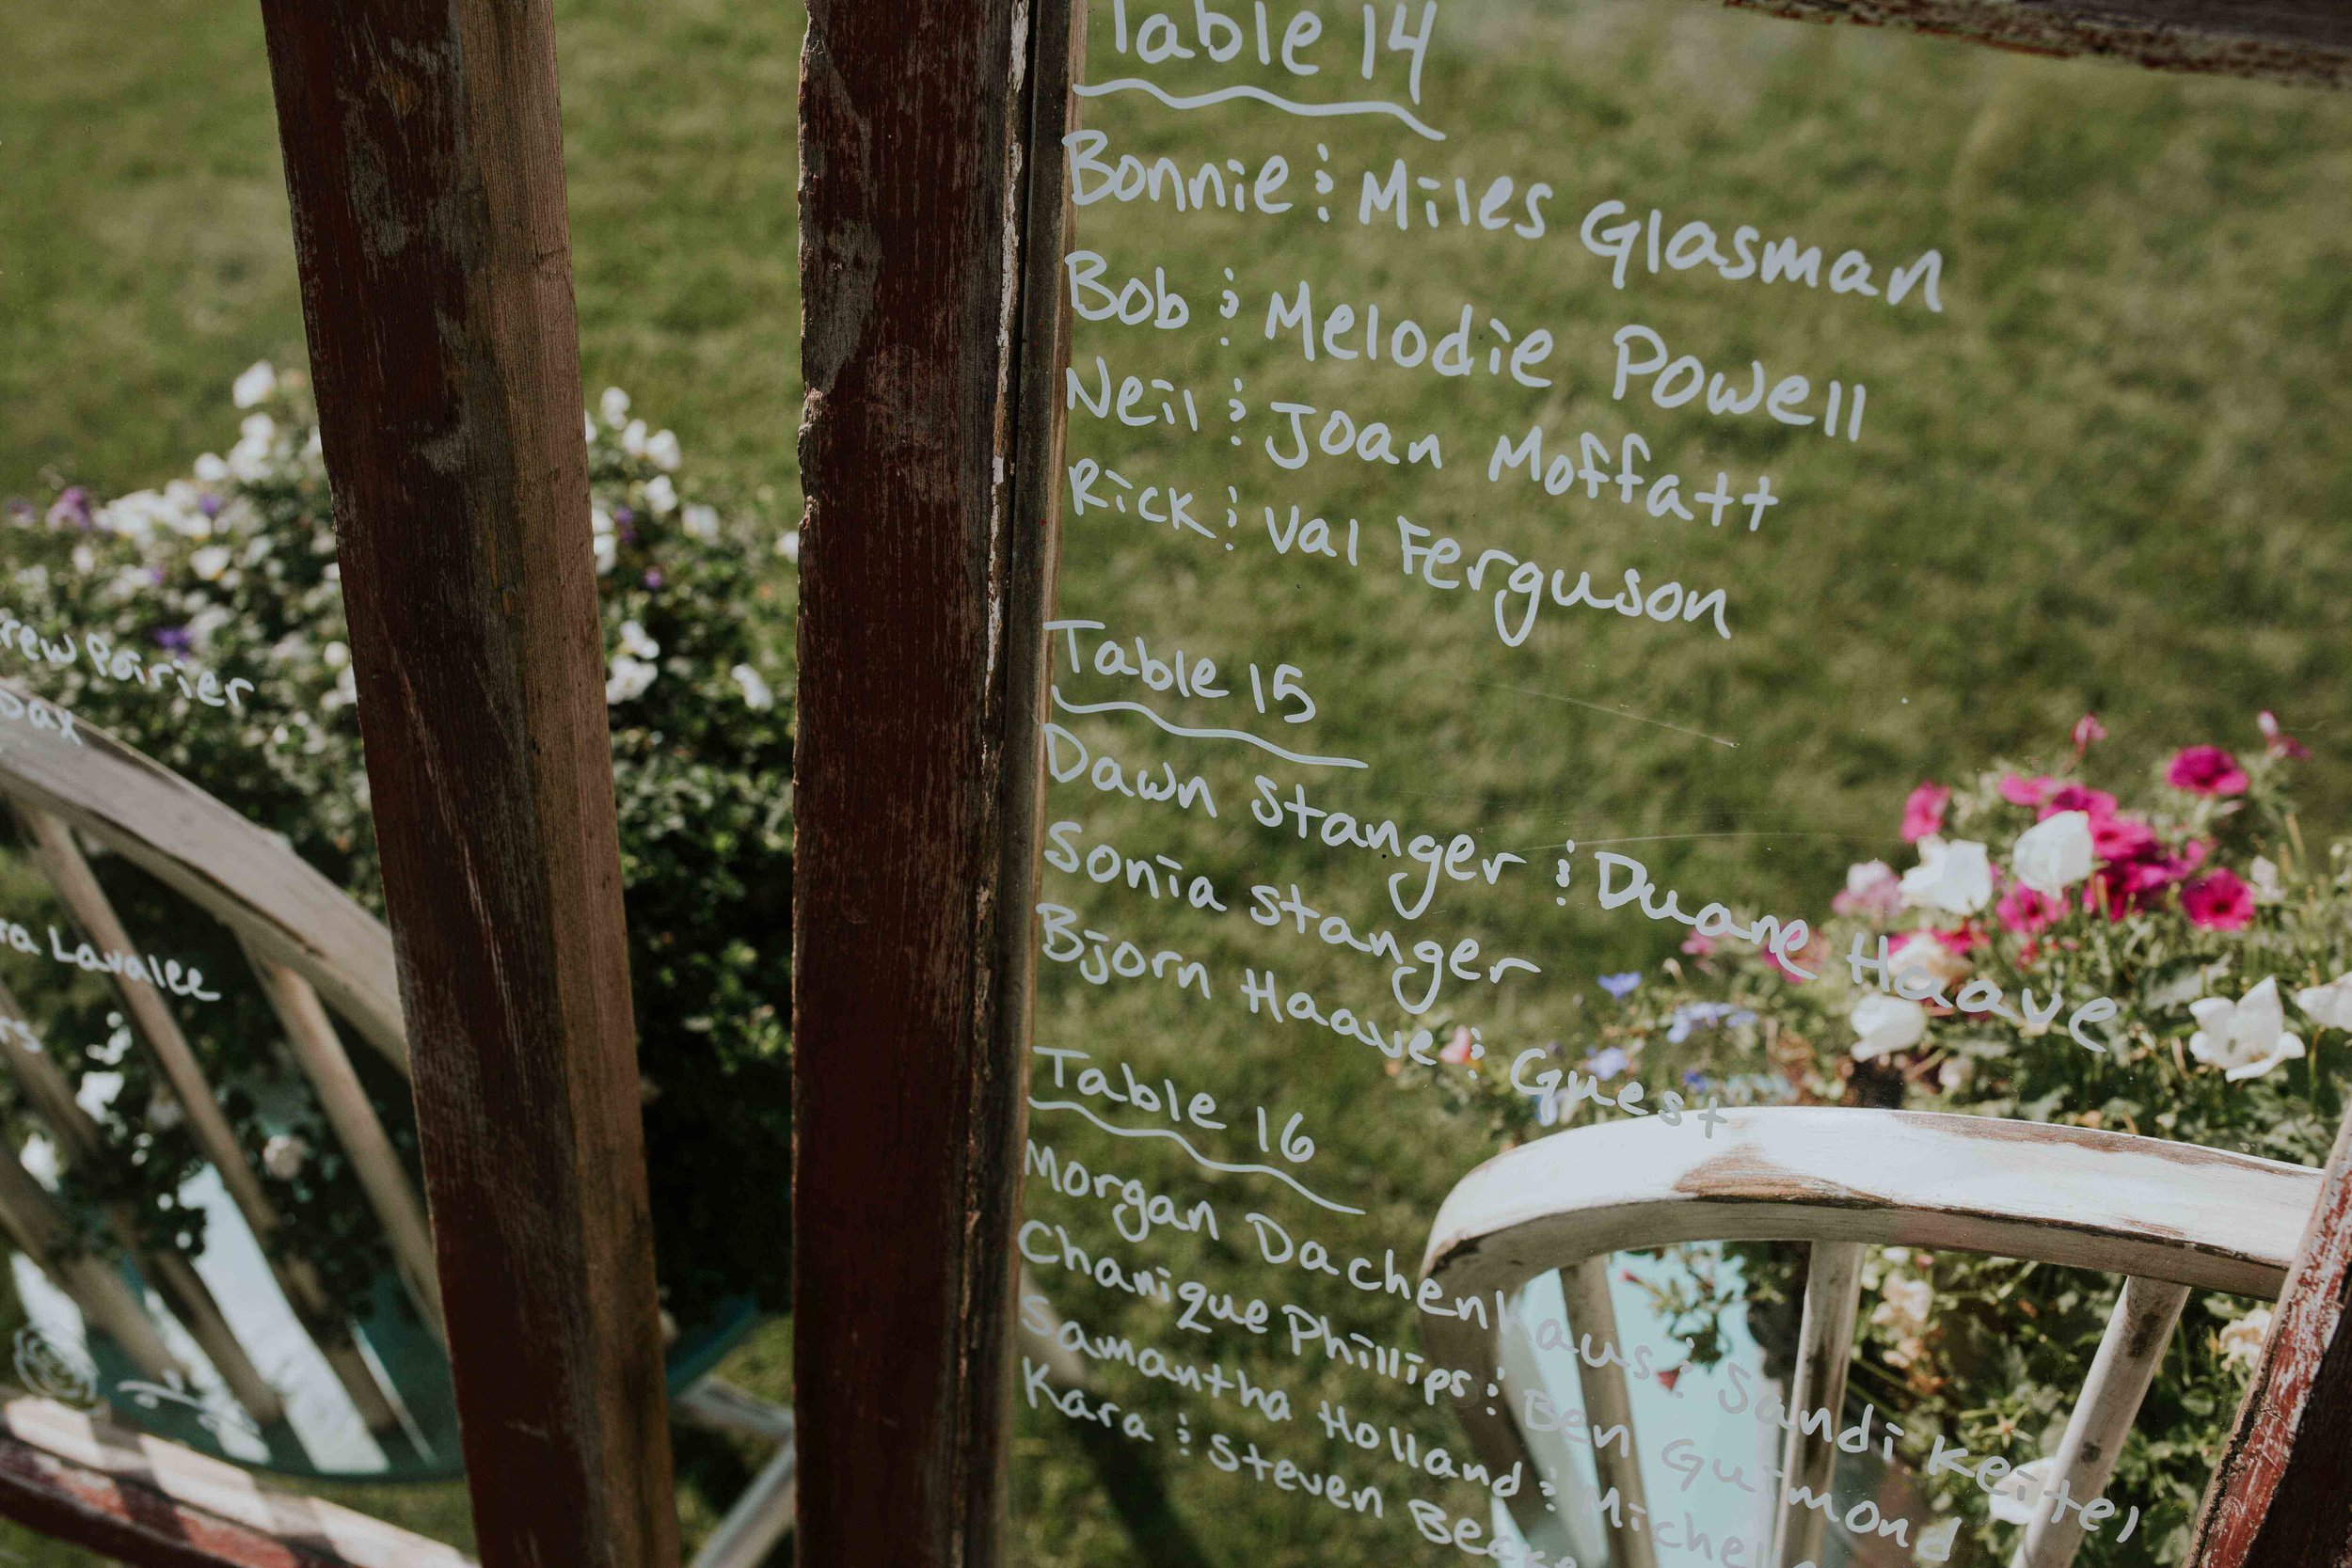 rew Poirier
Dax
ra Lavalee
rs
Table 14
Bonnie & Miles Glasman
Bob & Melodie Powell
Neil & Joan Moffatt
Rick & Val Ferguson
Table 15
Dawn Stanger & Duane Haave
Sonia Stanger
Bjorn Haave & Guest
Table 16
Morgan Dachenhaus & Sandi Keitel
Chanique Phillips & Ben Gu-mond
Samantha Holland & Michel
Kara & Steven Beck